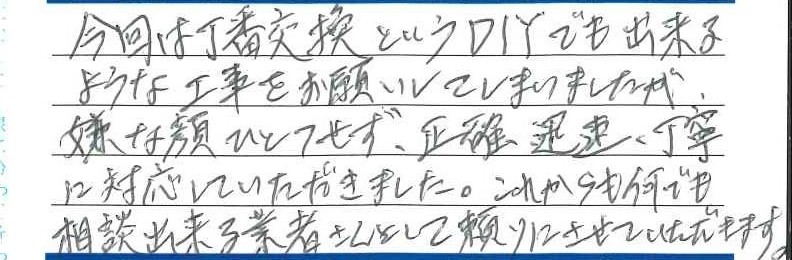 今回は丁番交換というDIYでも出来る
ような工事をお願いしてしまいましたが、
嫌な顔ひとつせず、正確、迅速、丁寧
に対応していただきました。これからも何でも
相談出来る業者さんとして頼りにさせていただきます。